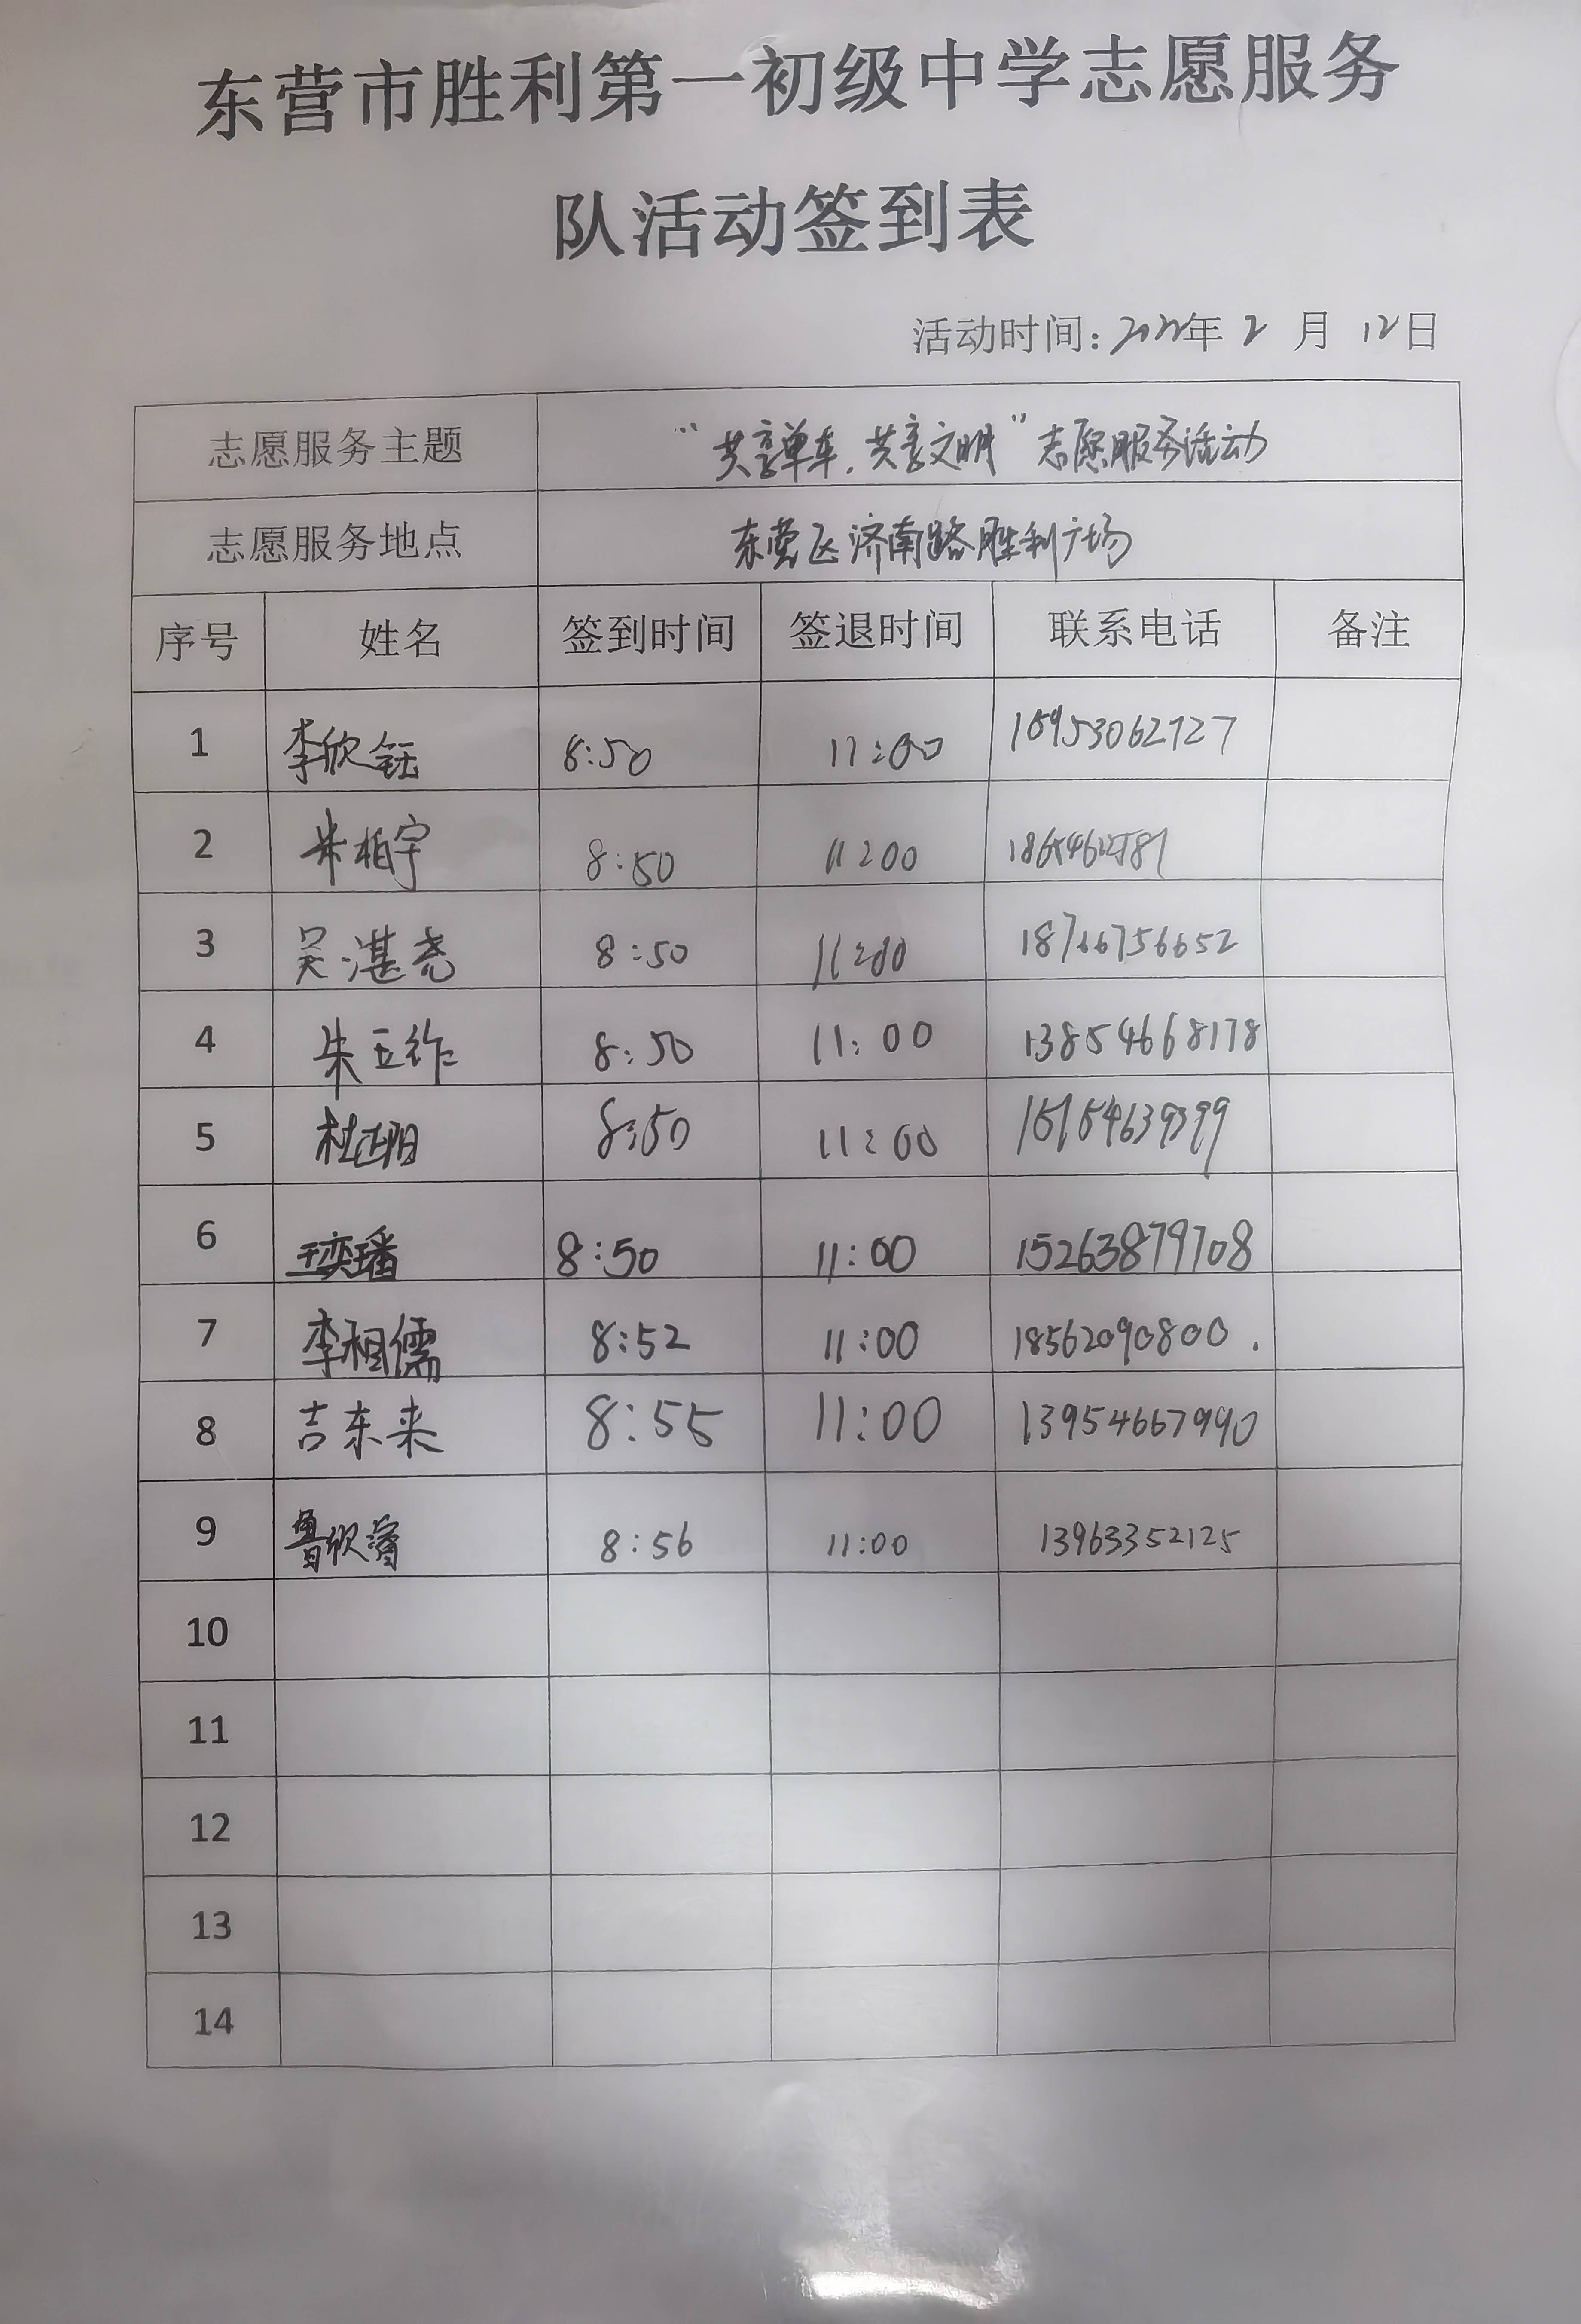 东营市胜利第一初级中学志愿服务
队活动签到表
活动时间：2022年 2 月 12日
志愿服务主题 “共享单车，共享文明”志愿服务活动
志愿服务地点 东营区济南路胜利广场
序号 姓名 签到时间 签退时间 联系电话 备注
1 李欣钰 8:50 11:00
2 朱柏宇 8:50 11:00
3 吴湛尧 8:50 11:00 18766756652
4 朱玉祚 8:50 11:00 13854668178
5 杜正阳 8:50 11:00 15154639399
6 王奕璠 8:50 11:00 15263879708
7 李相儒 8:52 11:00 18562090800.
8 吉东来 8:55 11:00 13954667990
9 鲁欣睿 8:56 11:00 13963352125
10
11
12
13
14